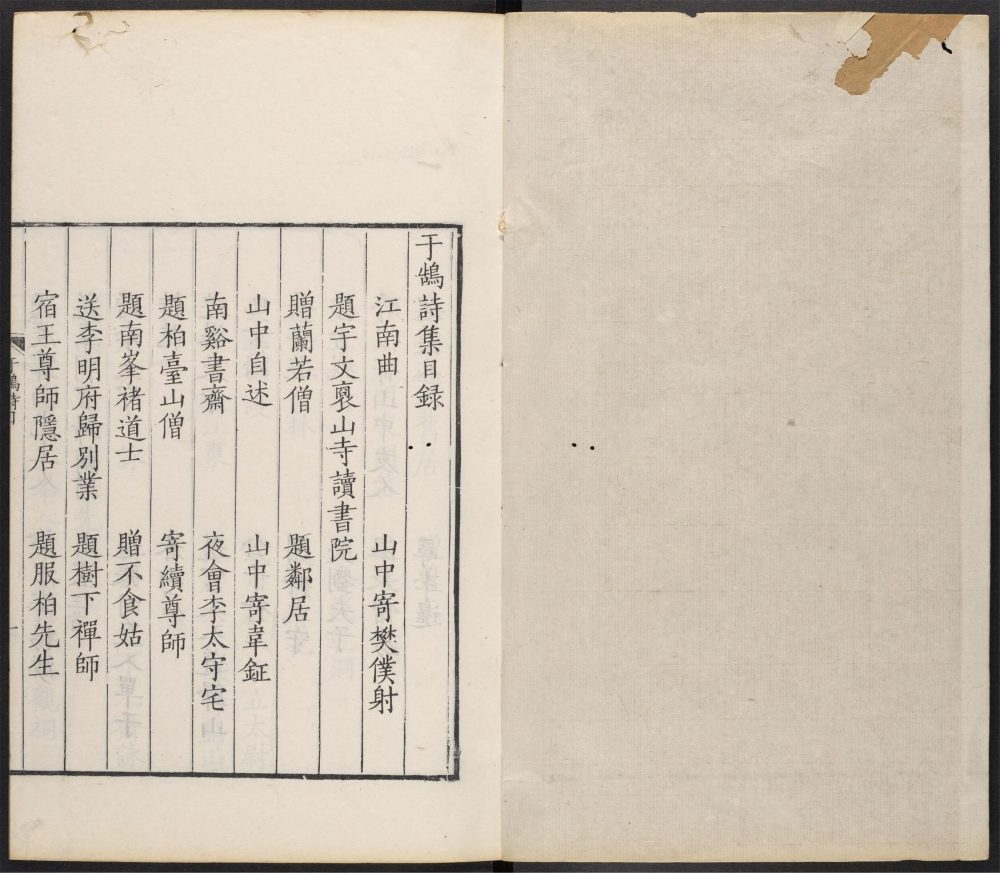 于鵠詩集目録
江南曲 山中寄樊僕射
題宇文褭山寺讀書院
贈蘭若僧 題鄰居
山中自述 山中寄韋鉦
南谿書齋 夜會李太守宅
題柏臺山僧 寄續尊師
題南峯褚道士 贈不食姑
送李明府歸別業 題樹下禪師
宿王尊師隱居 題服柏先生
一